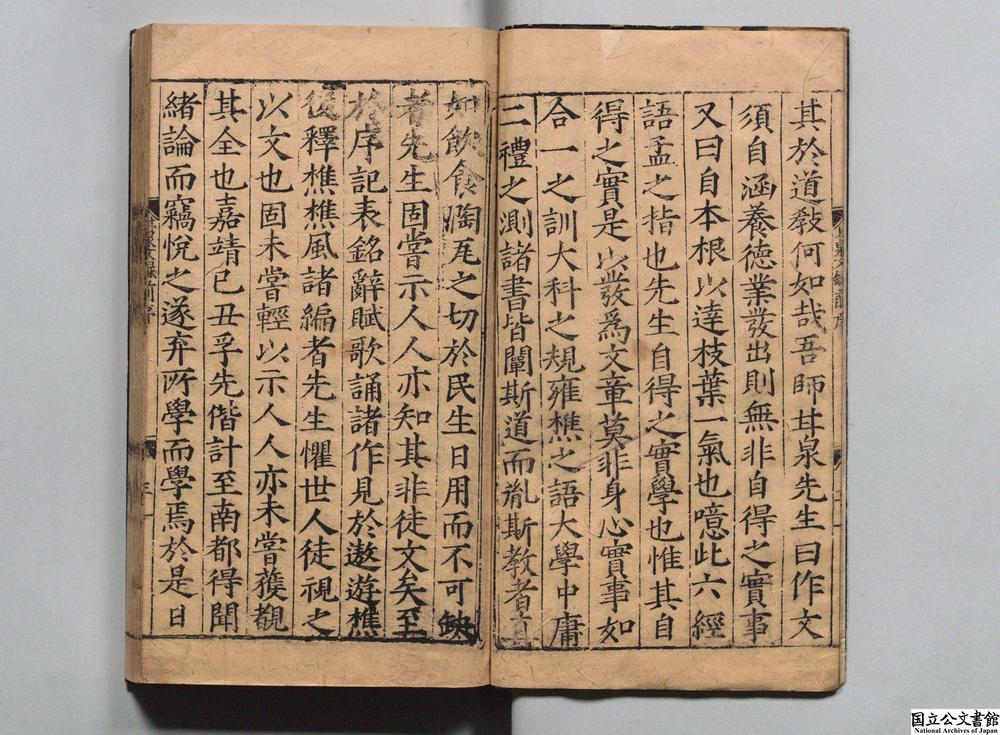 其於道敎何如哉吾師甘泉先生曰作文
須自涵養德業發出則無非自得之實事
又曰自本根以達枝葉一氣也噫此六經
語孟之指也先生自得之實學也惟其自
得之實是以發爲文章莫非身心實事如
合一之訓大科之規雍樵之語大學中庸
二禮之測諸書皆闡斯道而胤斯教者
如飲食陶瓦之切於民生日用而不可缺
者先生固嘗示人人亦知其非徒文矣至
於序記表銘辭賦歌誦諸作見於遨遊樵
後釋樵樵風諸編者先生懼世人徒視之
以文也固未嘗輕以示人人亦未嘗獲覩
其全也嘉靖己丑孚先偕計至南都得聞
緒論而竊悅之遂弃所學而學焉於是日
国立公文書館
National Archives of Japan